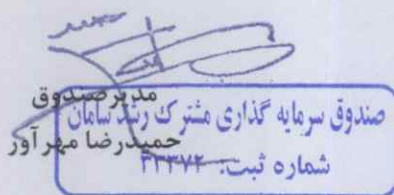 مدیر صندوق
حمیدرضا مهرآور
صندوق سرمایه گذاری مشترک رشد سامان
شماره ثبت: ۳۲۳۷۲